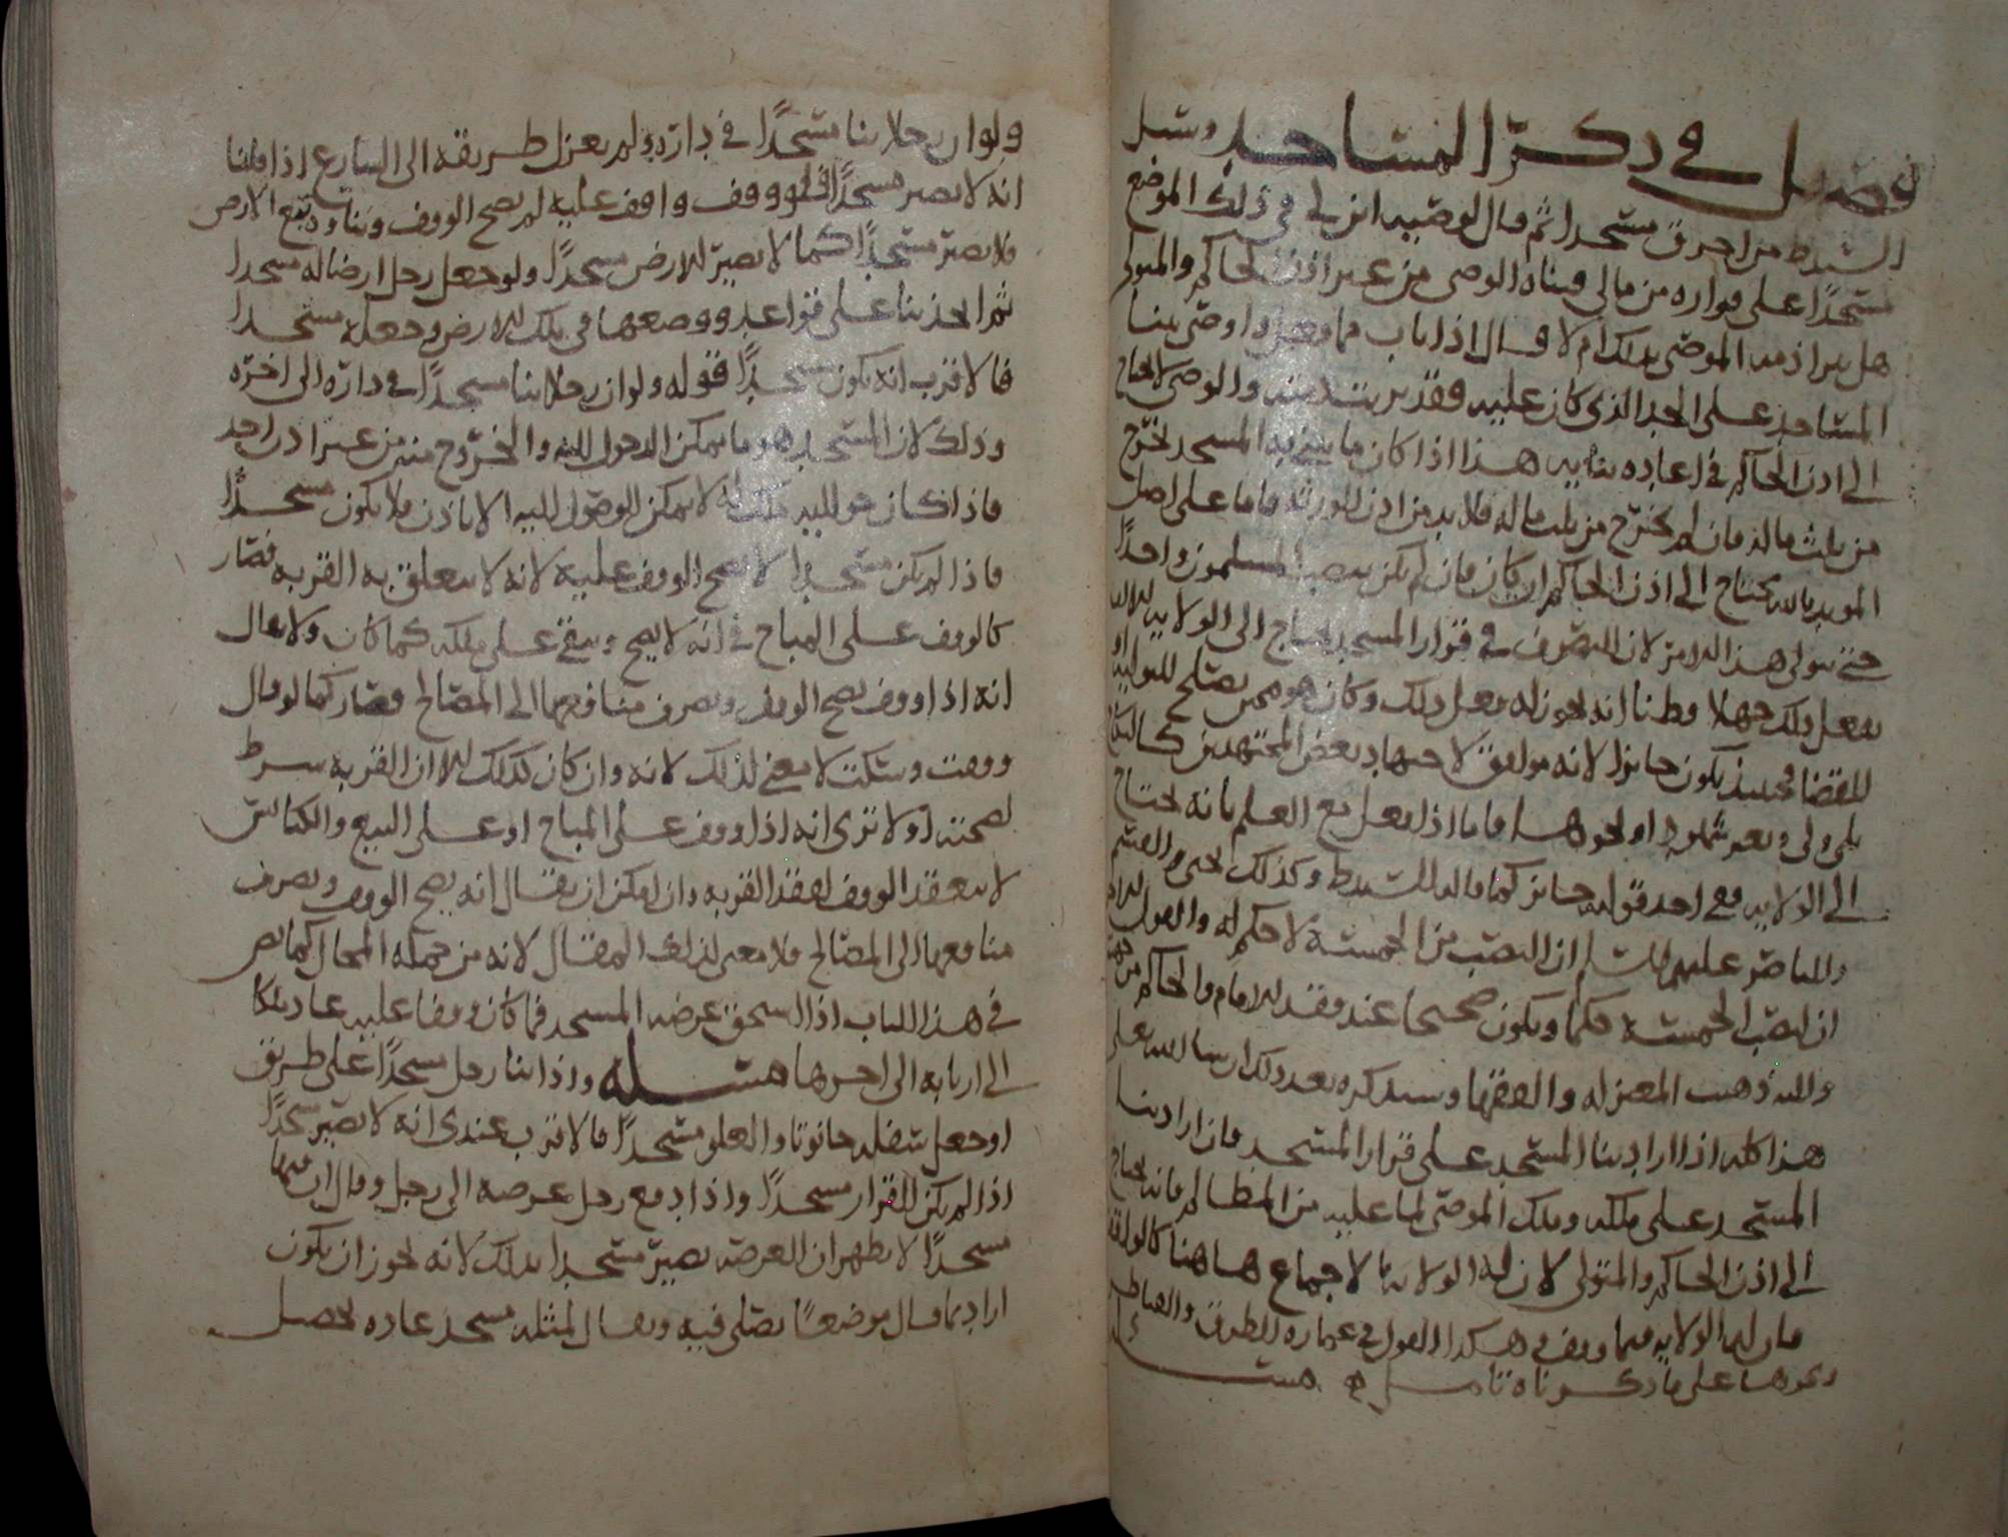 فصل في ذكر المساجد وسئل
السيد ط من احرق مسجدا ثم قال لوصيه ابن لي في ذلك الموضع
مسجدًا على قراره من مالي فبناه الوصي من غير اذن الحاكم والمتولي
هل يبرا ذمه الموصي بذلك ام لا قال اذا تاب مما فعل واوصى ببنا
المساجد على الحد الذي كان عليه فقد برئت ذمته والوصي لا يحتاج
الى اذن الحاكم في اعاده بنايه هذا اذا كان ما يبنى به المسجد يخرج
من ثلث ماله فان لم يخرج من ثلث ماله فلا بد من اذن الورثه فاما على اصل
المويد بالله يحتاج الى اذن الحاكم ان كان فان لم يكن ينصب المسلمون واحدًا
حتى يتولى هذا الامر لان التصرف في قرار المسجد يحتاج الى الولايه
يفعل ذلك جهلا وظنا انه يجوز له فعل ذلك وكان هو ممن يصلح للتوليه او
للقضا فحينئذ يكون جائزا لانه موافق لاجتهاد بعض المجتهدين كالنكاح
بلى ولي وبغير شهود او نحوهما فاما اذا فعل مع العلم بانه يحتاج
الى الولايه ففي احد قوليه جائز كما قاله السيد ط وكذلك يحيى والقسم
والناصر عليهم السلم ان النصب من الخمسة لا حكم له والقول
ان لنصب الخمسة حكما ويكون صحيحا عند فقد الامام والحاكم من جهته
واليه ذهب المعتزله والفقها وسنذكره بعد ذلك ان شا الله تعالى
هذا كله اذا اراد بنا المسجد على قرار المسجد فان اراد بنا
المسجد على ملكه وملك الموصي لما عليه من المظالم فانه يحتاج
الى اذن الحاكم والمتولي لان له الولايه بالاجماع هاهنا كالوقف
فان لهما الولايه فيما وقف وهكذا القول في عماره الطرق والقناطر
ونحوها على ما ذكرناه
ولو ان رجلا بنا مسجدًا في داره ولم يعزل طريقه الى الشارع اذا قلنا
انه لا يصير مسجدًا فلو وقف واقف عليه لم يصح الوقف وبناوه تبع الارض
فلا يصير مسجدًا كما لا يصير الارض مسجدًا ولو جعل رجل ارضا له مسجدا
ثم اتخذ بنا على قواعد ووضعها في تلك الارض وجعله مسجدا
فالاقرب انه يكون مسجدًا قوله ولو ان رجلا بنا مسجدًا في داره الى اخره
وذلك لان المسجد هو ما يمكن الدخول اليه والخروج منه من غير اذن احد
فاذا كان حواليه ملك له لا يمكن الوصول اليه الا باذن فلا يكون مسجدًا
فاذا لم يكن مسجدا لا يصح الوقف عليه لانه لا يتعلق به القربه فصار
كالوقف على المباح في انه لا يصح ويبقى على ملكه كما كان ولا يقال
انه اذا وقف يصح الوقف ويصرف منافعها الى المصالح فصار كما لو قال
وقفت وسكت لا معنى لذلك لانه وان كان كذلك الا ان القربه شرط
لصحته اولا ترى انه اذا وقف على المباح او على البيع والكنائس
لا ينعقد الوقف لفقد القربه وان امكن ان يقال انه يصح الوقف ويصرف
منافعها الى المصالح فلا معنى لذلك المقال لانه من جمله المحال كما نص
في هذا الباب اذا استحق عرصه المسجد فما كان وقفا عليه عاد ملكا
الى اربابه الى اخرها مسئله واذا بنا رجل مسجدًا على طريق
او جعل سفله حانوتا والعلو مسجدًا فالاقرب عندي انه لا يصير مسجدًا
اذا لم يكن القرار مسجدًا واذا دفع رجل عرصه الى رجل وقال ابن فيها
مسجدًا لا يظهر ان العرصه يصير مسجدا بذلك لانه يجوز ان يكون
اراد بما قال موضعًا يصلى فيه ويقال لمثله مسجد عاده يحصل